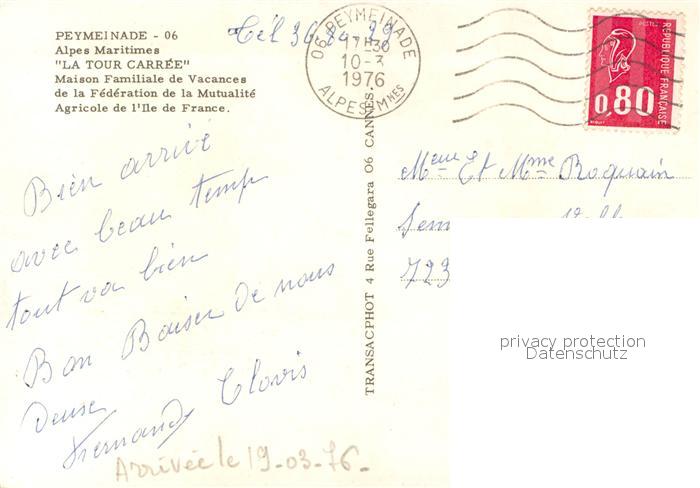 PEYMEINADE - 06
Alpes Maritimes
"LA TOUR CARRÉE"
Maison Familiale de Vacances
de la Fédération de la Mutualité
Agricole de l'Ile de France.
Tél 36
06 PEYMEINADE
17H30
10-3
1976
ALPES-MMES
POSTES
REPUBLIQUE FRANÇAISE
0,80
Bien arrivé
avec beau temp
tout va bien
Bon Baiser de nous
Deuse
Fernand Clovis
Arrivée le 19-03-76-
TRANSACPHOT 4 Rue Fellegara 06 CANNES.
Meur Et Mme Roquain
Sem
723
privacy protection
Datenschutz